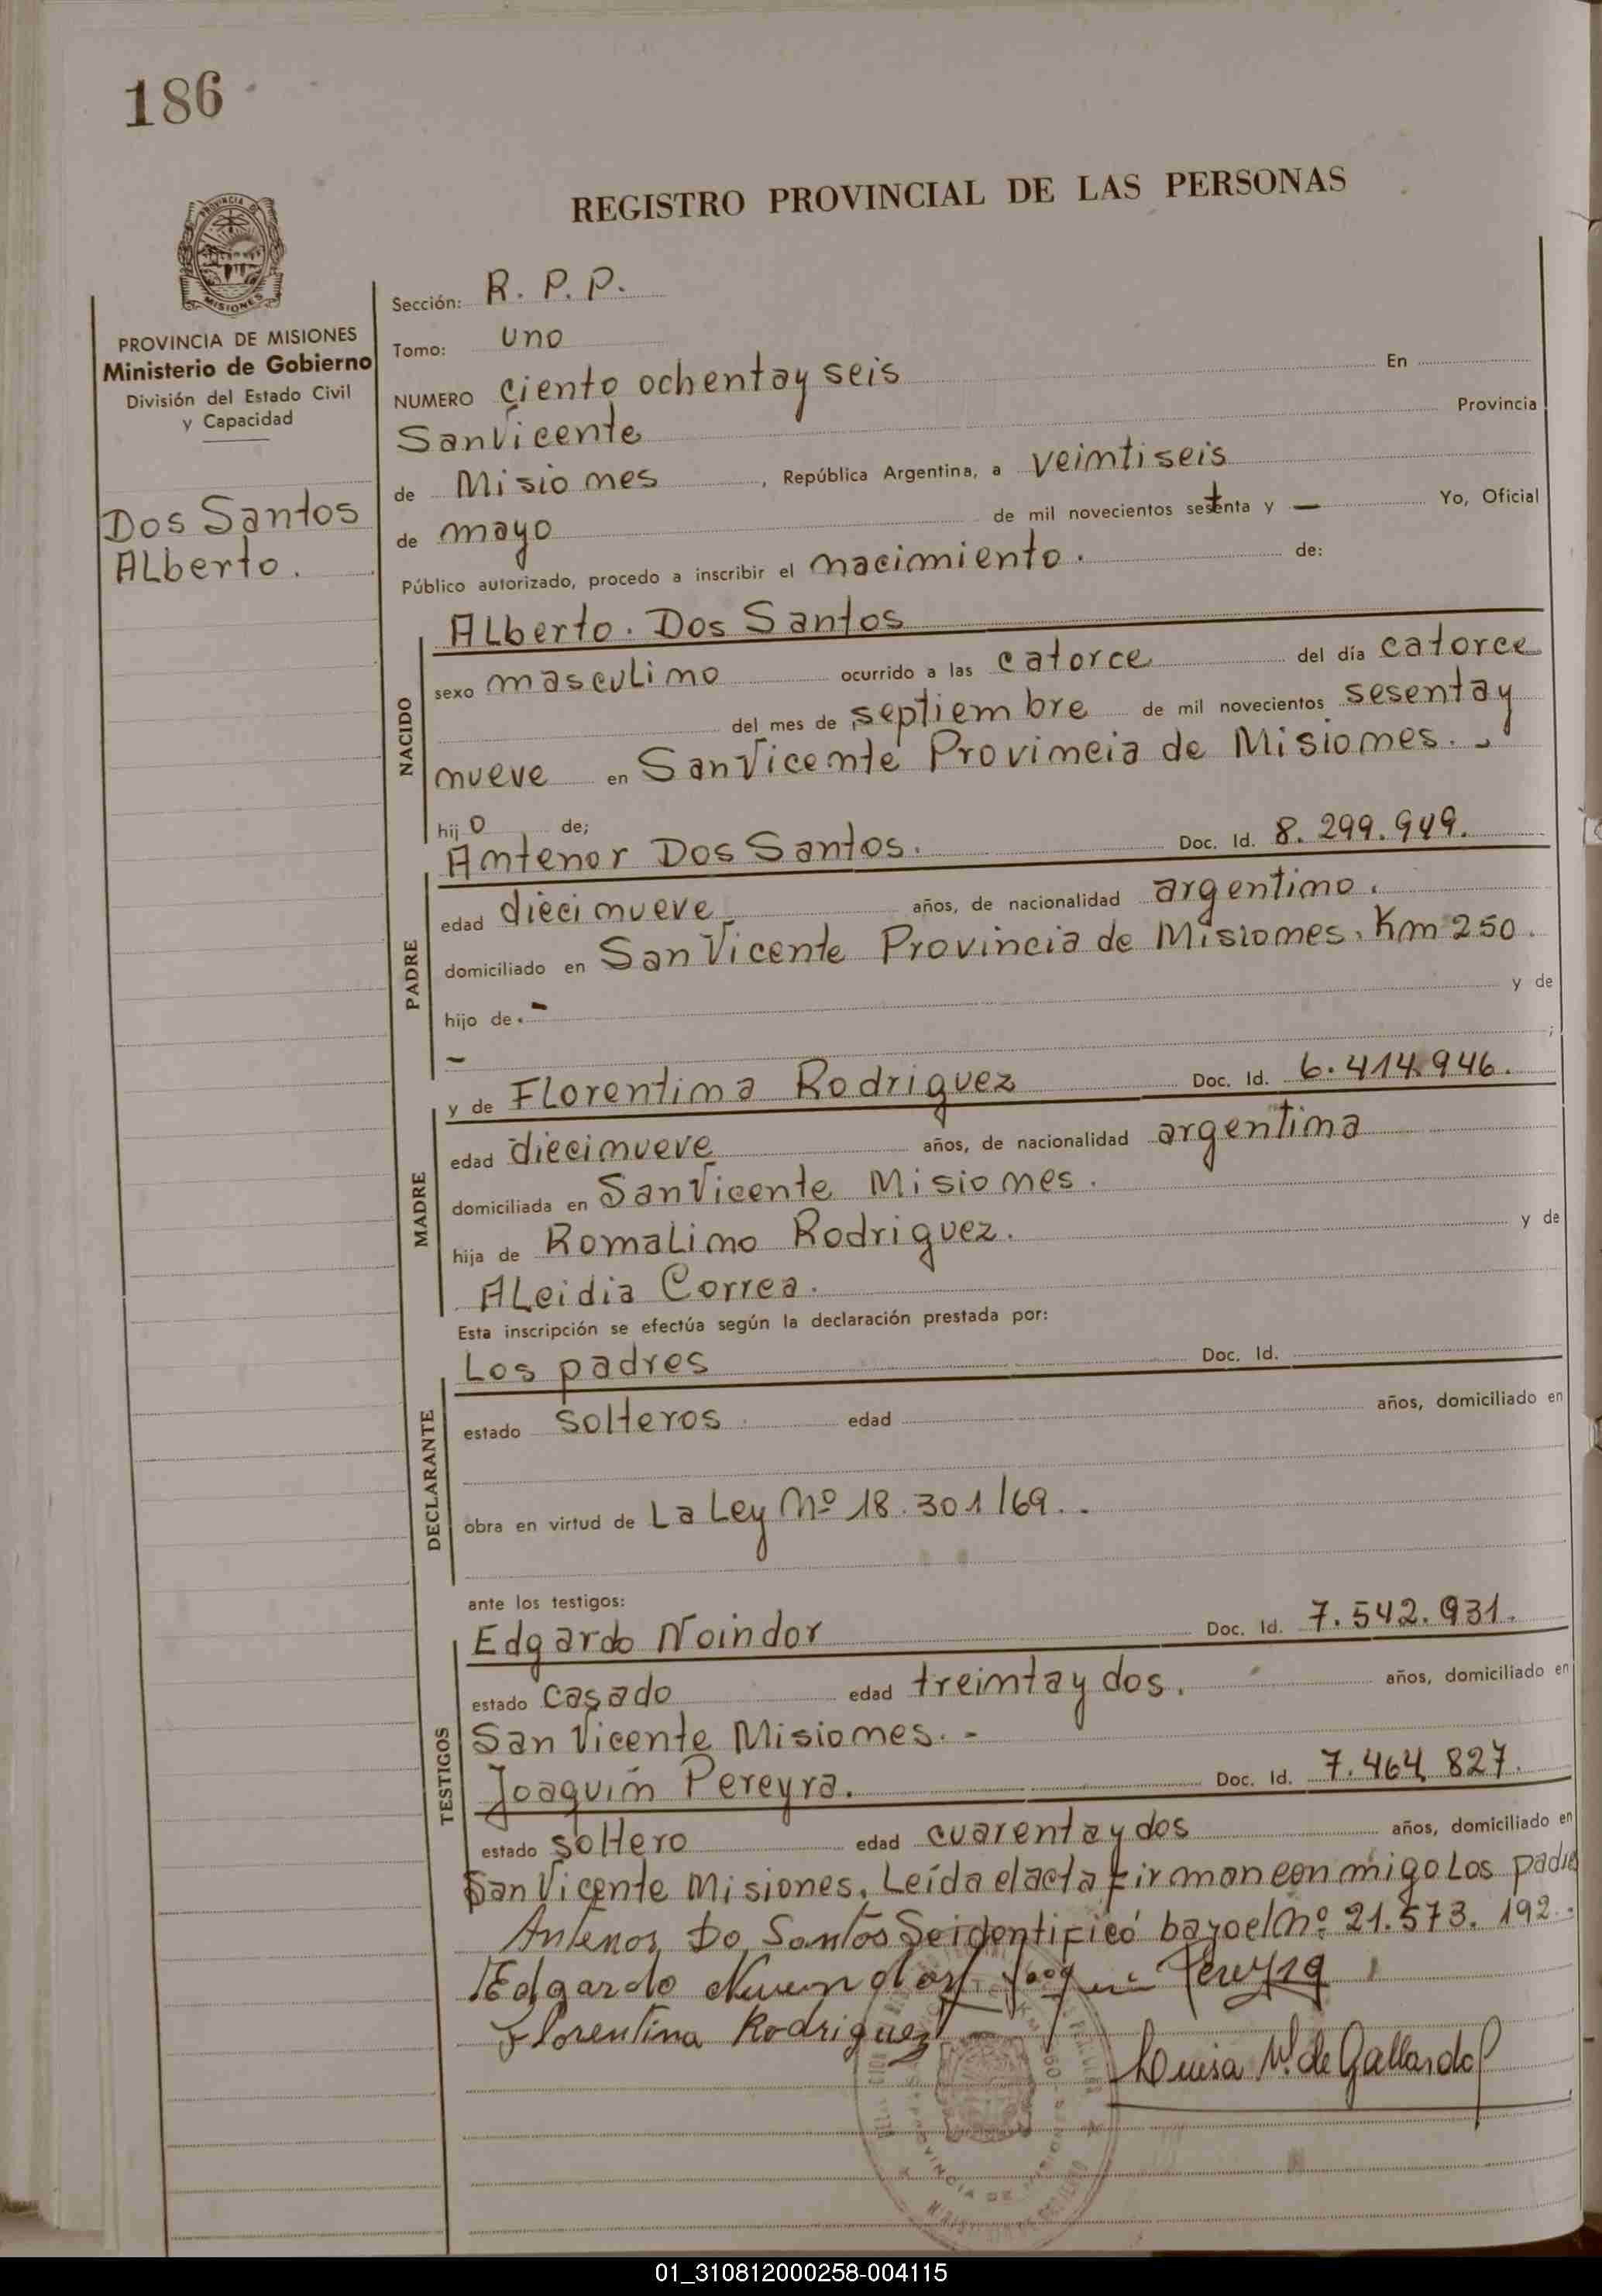 186
REGISTRO PROVINCIAL DE LAS PERSONAS
PROVINCIA DE MISIONES
Ministerio de Gobierno
División del Estado Civil
y Capacidad
Dos Santos
Alberto.
Sección: R. P. P.
Tomo: uno
NUMERO ciento ochenta y seis En
San Vicente Provincia
de Misiones, República Argentina, a veintiseis
de mayo de mil novecientos setenta y — Yo, Oficial
Público autorizado, procedo a inscribir el nacimiento. de:
NACIDO
Alberto. Dos Santos
sexo masculino ocurrido a las catorce del día catorce
del mes de septiembre de mil novecientos sesenta y
nueve en San Vicente Provincia de Misiones. -
hij o de;
PADRE
Antenor Dos Santos. Doc. Id. 8. 299. 949.
edad diecinueve años, de nacionalidad argentino.
domiciliado en San Vicente Provincia de Misiones. Km 250.
hijo de - y de
- ;
MADRE
y de Florentina Rodriguez Doc. Id. 6. 414.946.
edad diecinueve años, de nacionalidad argentina
domiciliada en San Vicente Misiones.
hija de Romalino Rodriguez. y de
Aleidia Correa.
Esta inscripción se efectúa según la declaración prestada por:
DECLARANTE
Los padres Doc. Id.
estado solteros edad años, domiciliado en
obra en virtud de La Ley Nº 18.301/69. -
ante los testigos:
TESTIGOS
Edgardo Noindor Doc. Id. 7. 542. 931.
estado casado edad treinta y dos. años, domiciliado en
San Vicente Misiones. -
Joaquin Pereyra. Doc. Id. 7. 464 827.
estado soltero edad cuarenta y dos años, domiciliado en
San Vicente Misiones. Leída el acta firman con migo Los padres
Antenor Do Santos Se identificó bajo el Nº 21. 573. 192.-
Edgardo Pereyra
Florentina Rodriguez
Luisa de Gallardo
01_310812000258-004115